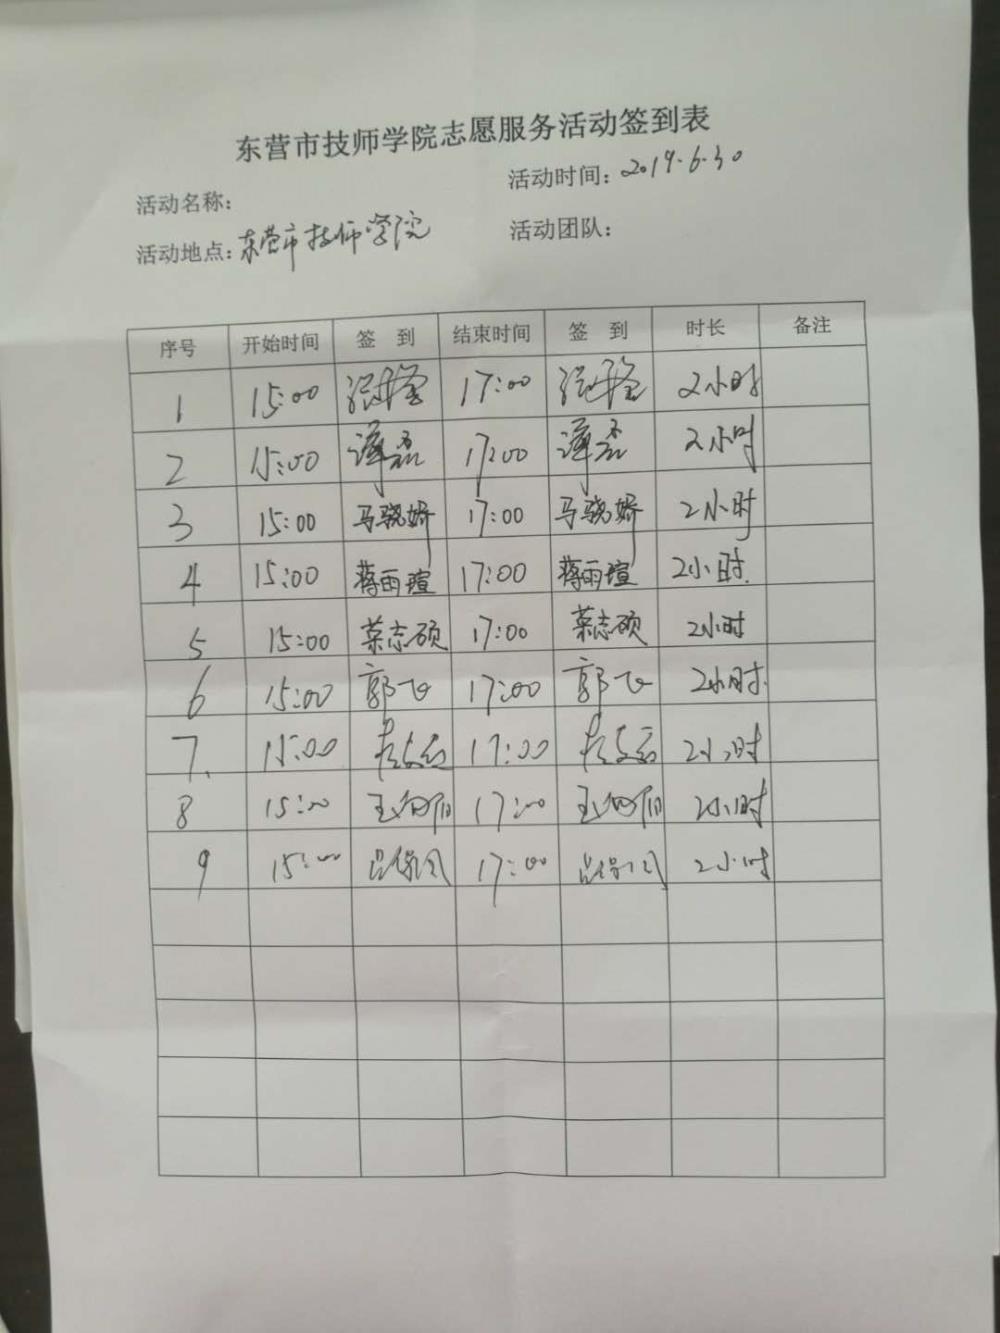 东营市技师学院志愿服务活动签到表
活动名称： 活动时间：2019.6.30
活动地点：东营市技师学院 活动团队：
序号 开始时间 签 到 结束时间 签 到 时长 备注
1 15:00 17:00 2小时
2 15:00 17:00 2小时
3 15:00 马骁娇 17:00 马骁娇 2小时
4 15:00 蒋雨瑄 17:00 蒋雨瑄 2小时.
5 15:00 荣志硕 17:00 荣志硕 2小时
6 15:00 郭飞 17:00 郭飞 2小时.
7. 15:00 17:00 2小时
8 15:00 17:00 2小时
9 15:00 17:00 2小时